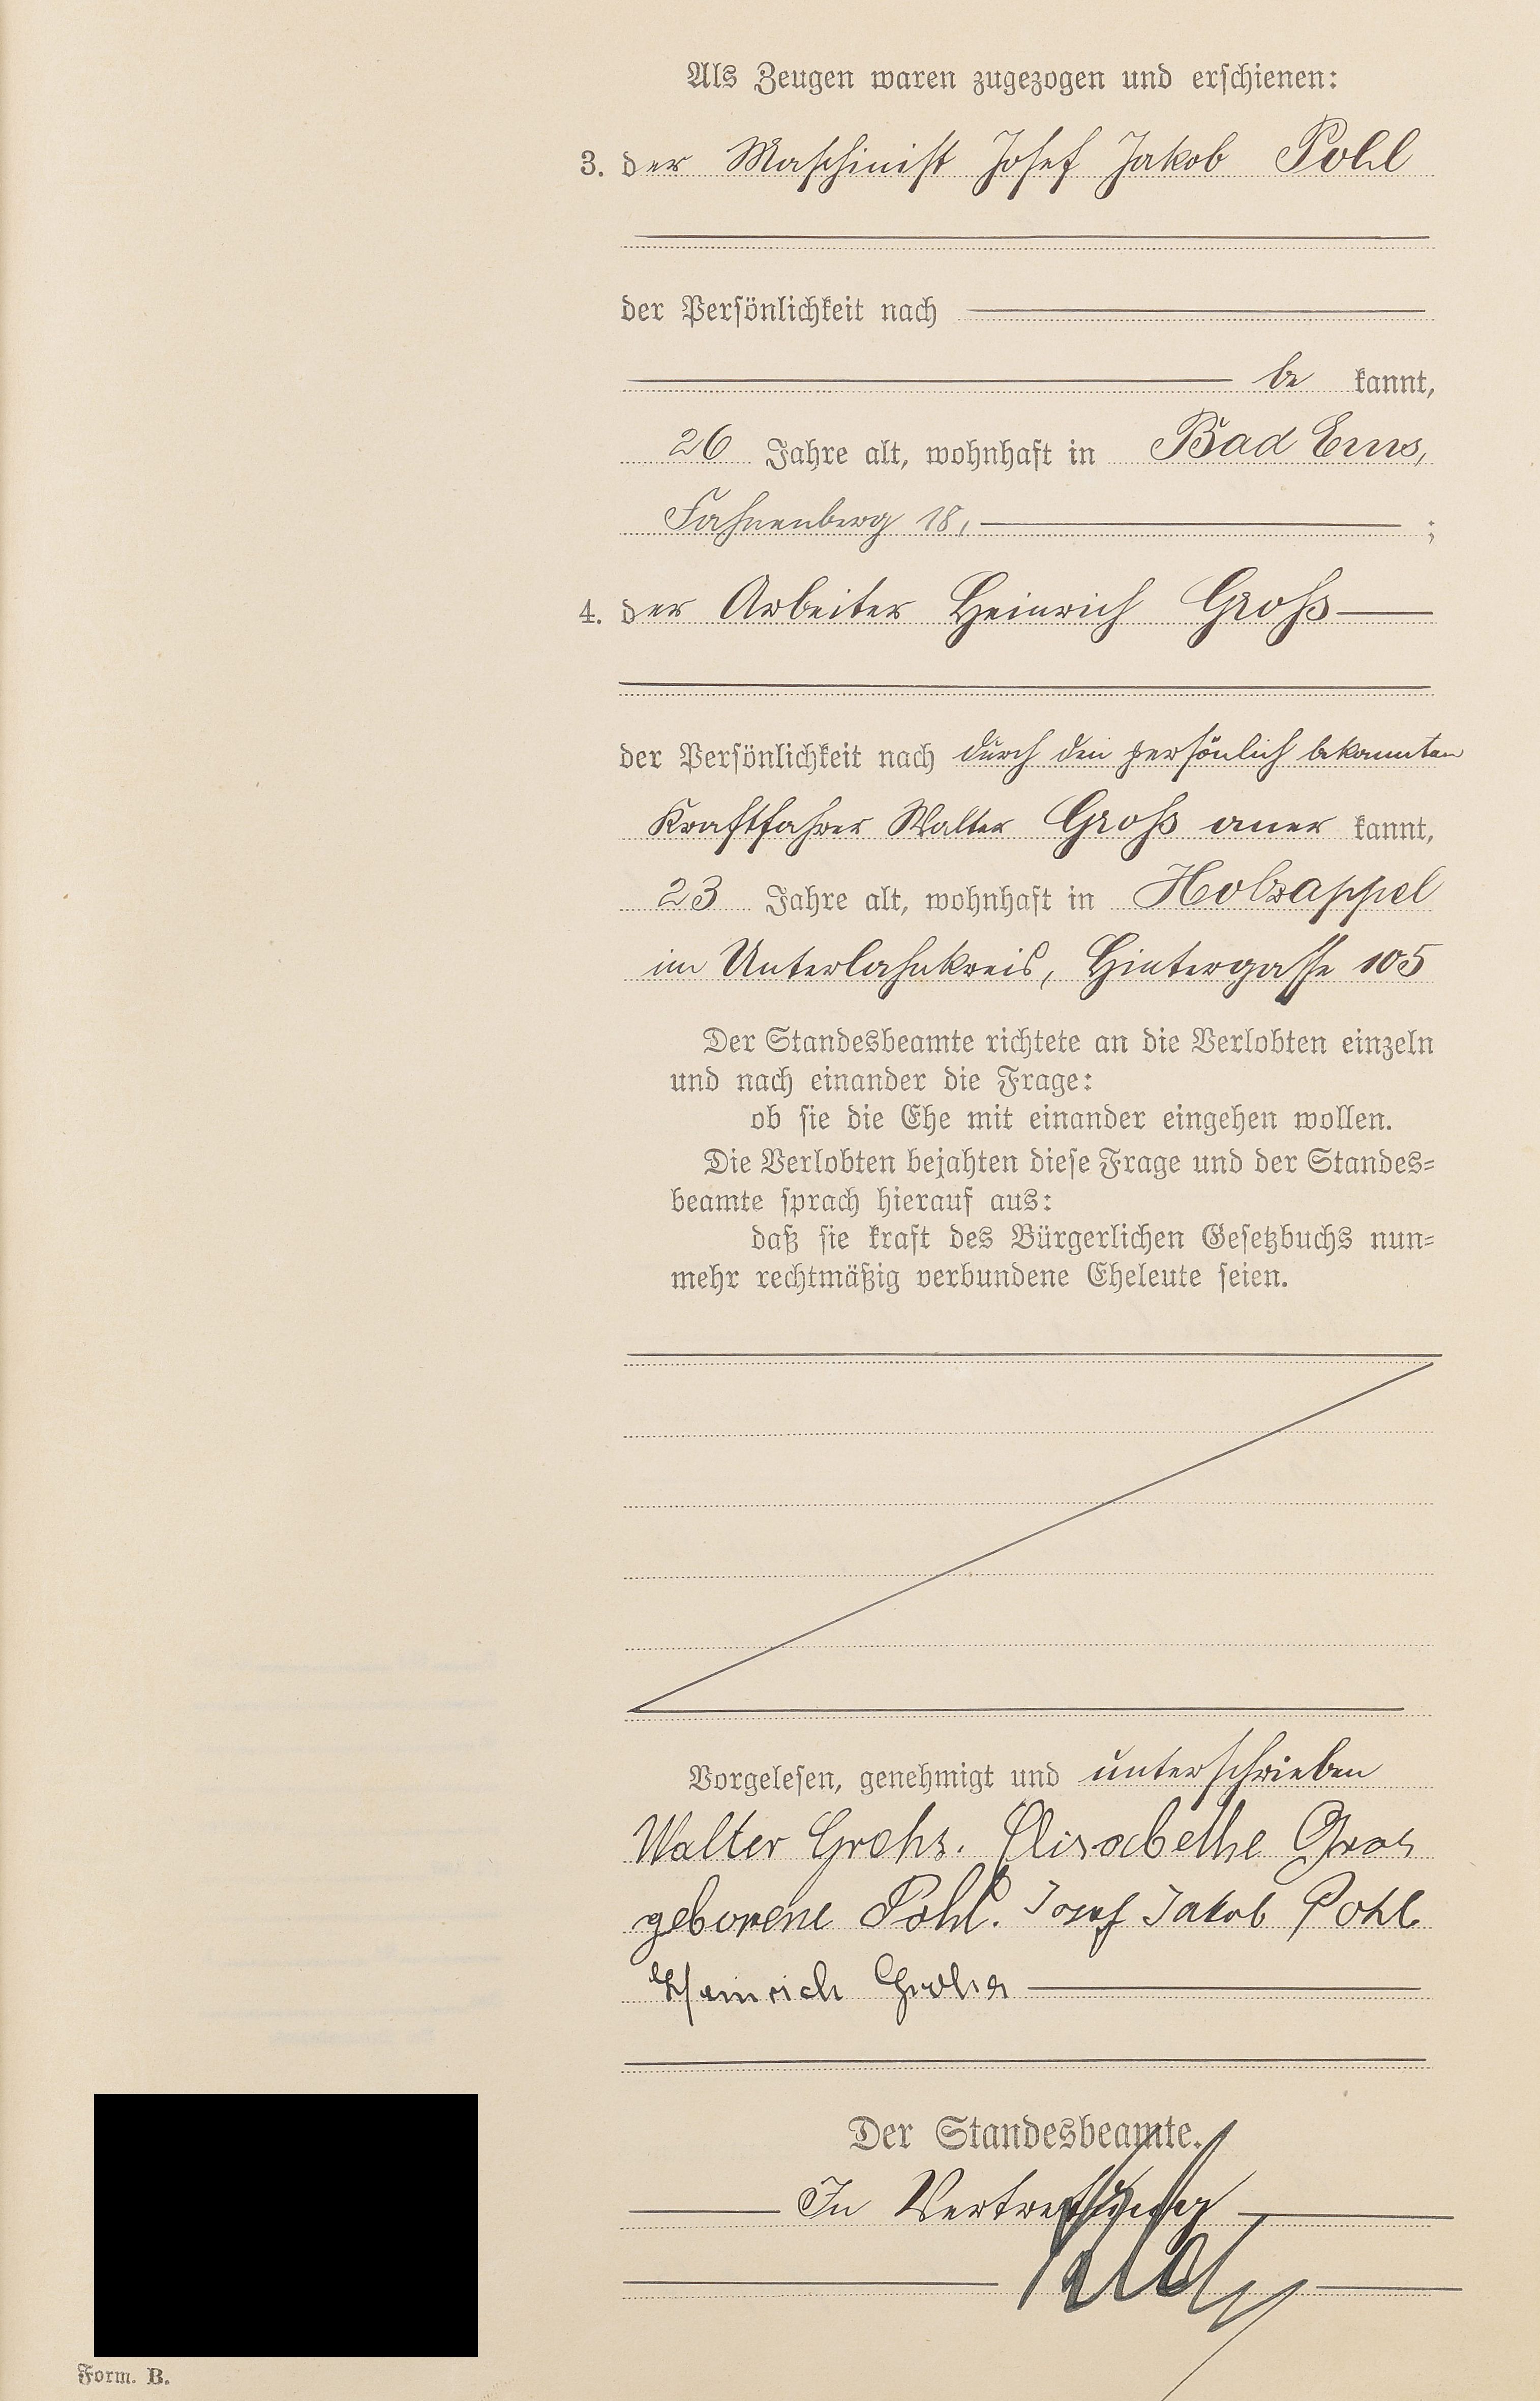 Als Zeugen waren zugezogen und erschienen:
3. der Maschinist Josef Jakob Pohl
der Persönlichkeit nach
be kannt,
26 Jahre alt, wohnhaft in Bad Ems,
Fahnenberg 18, ;
4. der Arbeiter Heinrich Groß
der Persönlichkeit nach durch den persönlich bekannten
Kraftfahrer Walter Groß aner kannt,
23 Jahre alt, wohnhaft in Holzappel
im Unterlahnkreis, Hintergasse 105
Der Standesbeamte richtete an die Verlobten einzeln
und nach einander die Frage:
ob sie die Ehe mit einander eingehen wollen.
Die Verlobten bejahten diese Frage und der Standes-
beamte sprach hierauf aus:
daß sie kraft des Bürgerlichen Gesetzbuchs nun-
mehr rechtmäßig verbundene Eheleute seien.
Vorgelesen, genehmigt und unterschrieben
Walter Grohs. Elisabethe Gros
geborene Pohl. Josef Jakob Pohl
Heinrich Grohs
Der Standesbeamte.
In Vertretung
Form. B.